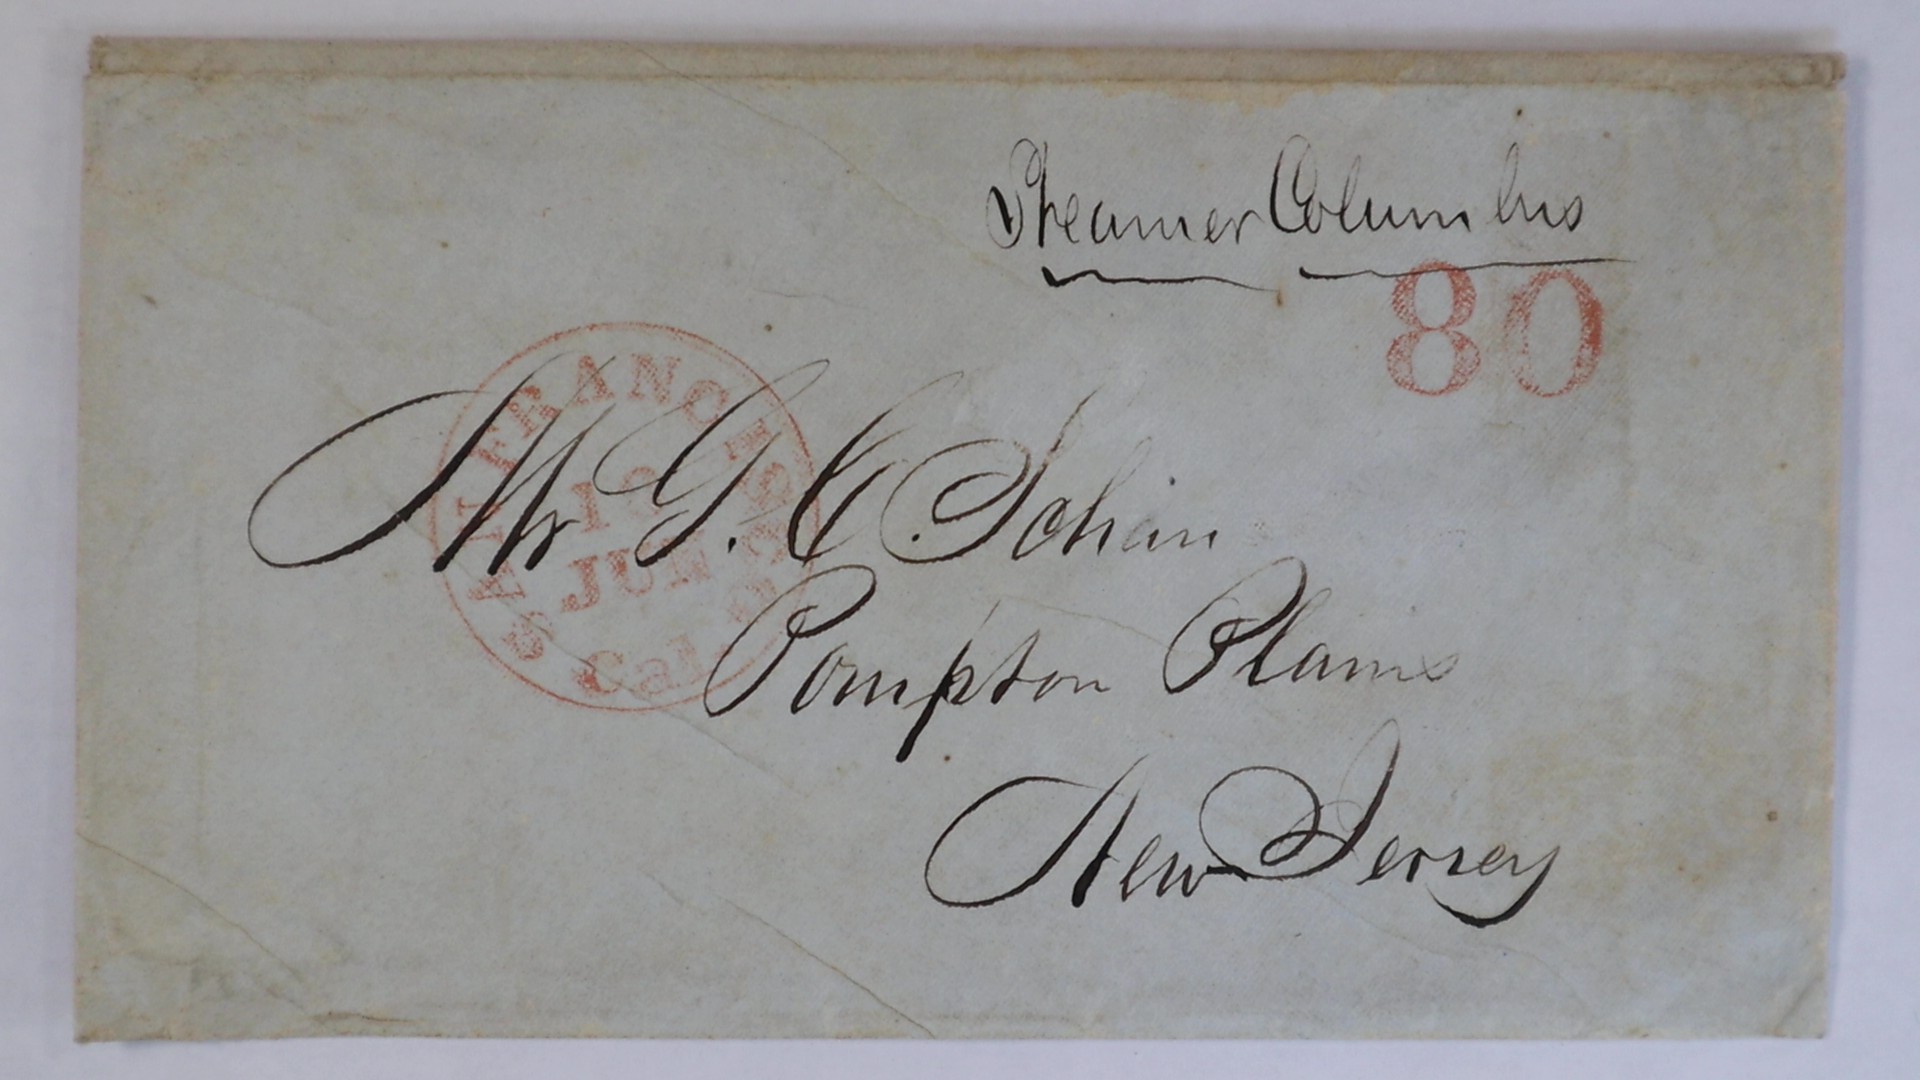 Steamer Columbus
80
SAN FRANCISCO
JUN
Cal.
Mr G. C. Schan
Pompton Plains
New Jersey